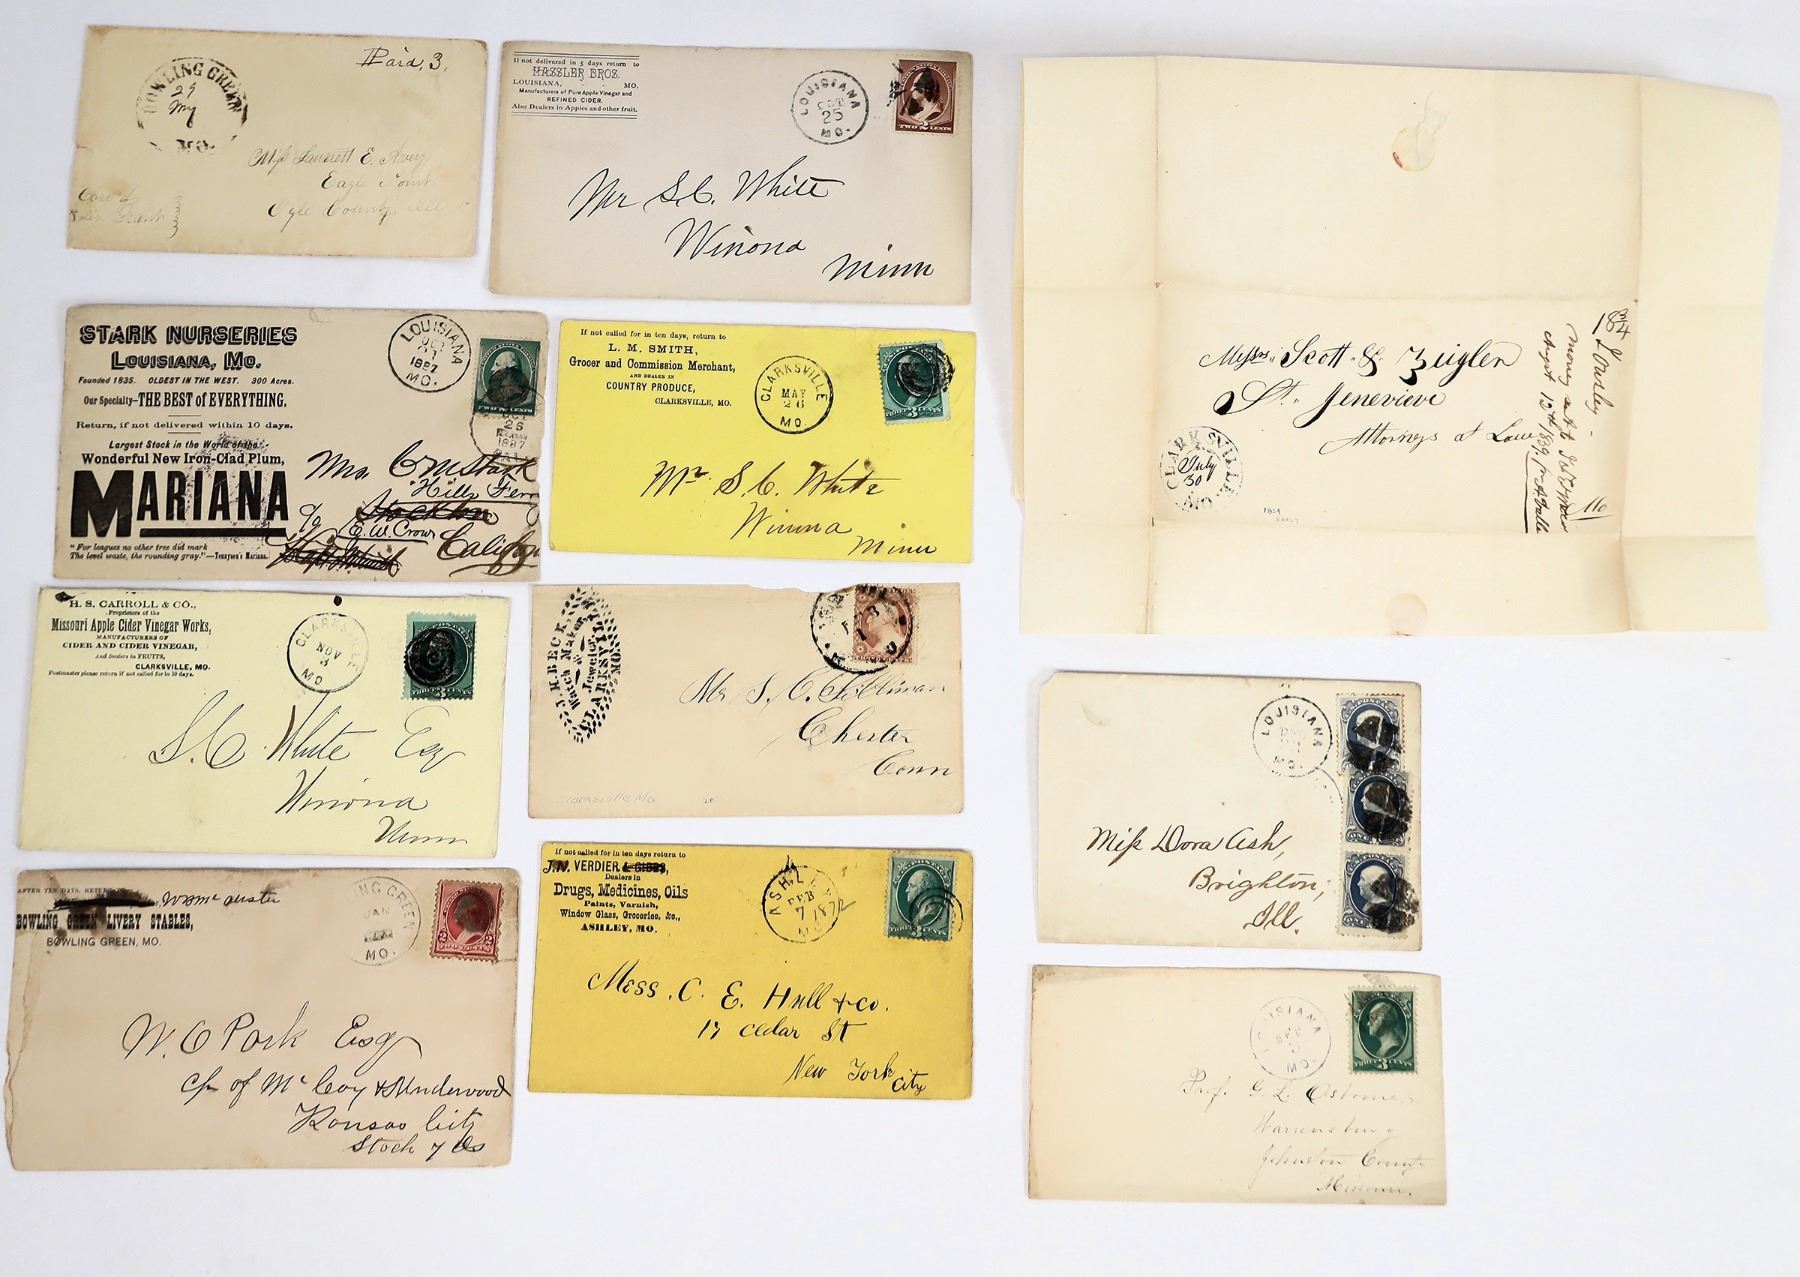 BOWLING GREEN
29
My
MO.
Paid. 3.
Miss E. Avery
Eagle Point
Ogle County
If not delivered in 5 days return to
HAZZLER BROS.
LOUISIANA, MO.
Manufacturers of Pure Apple Vinegar and
REFINED CIDER.
Also Dealers in Apples and other fruit.
LOUISIANA
OCT
25
MO.
TWO 2 CENTS
Mr S. C. White
Winona
Minn
STARK NURSERIES
LOUISIANA, MO.
Founded 1835. OLDEST IN THE WEST. 300 Acres.
Our Specialty—THE BEST of EVERYTHING.
Return, if not delivered within 10 days.
Largest Stock in the World of the
Wonderful New Iron-Clad Plum,
MARIANA
"For leagues no other tree did mark
The level waste, the rounding gray."—Tennyson's Mariana.
LOUISIANA
1887
MO.
TWO CENTS
OCT
26
1887
Mrs.
Hills Ferry
Stockton
c/o E. W. Crows
California
If not called for in ten days, return to
L. M. SMITH,
Grocer and Commission Merchant,
AND DEALER IN
COUNTRY PRODUCE,
CLARKSVILLE, MO.
CLARKSVILLE
MAY
26
MO.
THREE 3 CENTS
Mr S. C. White
Winona
Minn
H. S. CARROLL & CO.,
Proprietors of the
Missouri Apple Cider Vinegar Works,
MANUFACTURERS OF
CIDER AND CIDER VINEGAR,
And Dealers in FRUITS,
CLARKSVILLE, MO.
Postmaster please return if not called for in 10 days.
CLARKSVILLE
NOV
3
MO
THREE 3 CENTS
S. C. White Esq
Winona
Minn
J. H. BECK,
Watch Maker
&
Jeweler
CLARKSVILLE
MO
Mr S. C. Silliman
Chester
Conn
Clarksville Mo
AFTER TEN DAYS, RETURN TO
BOWLING GREEN LIVERY STABLES,
BOWLING GREEN, MO.
BOWLING GREEN
JAN
MO.
TWO CENTS
W. C. Park Esq
c/o of McCoy & Underwood
Kansas City
Stock Yds
If not called for in ten days return to
J. N. VERDIER & GIBBS,
Dealers in
Drugs, Medicines, Oils
Paints, Varnish,
Window Glass, Groceries, &c.,
ASHLEY, MO.
ASHLEY
FEB
7 1872
MO
THREE 3 CENTS
Mess. C. E. Hull & co.
17 Cedar St
New York
City
Messrs. Scott & Zeigler
St. Genevieve
Attorneys at Law
CLARKSVILLE
July
30
MO.
1839
18 3/4
Mo
Money sent to
August 13th 1839
LOUISIANA
MO.
Miss Dora Ash,
Brighton,
Ill.
LOUISIANA
MO.
THREE 3 CENTS
Prof. G. L. Osborne
Warrensburg
Johnston County
Missouri.